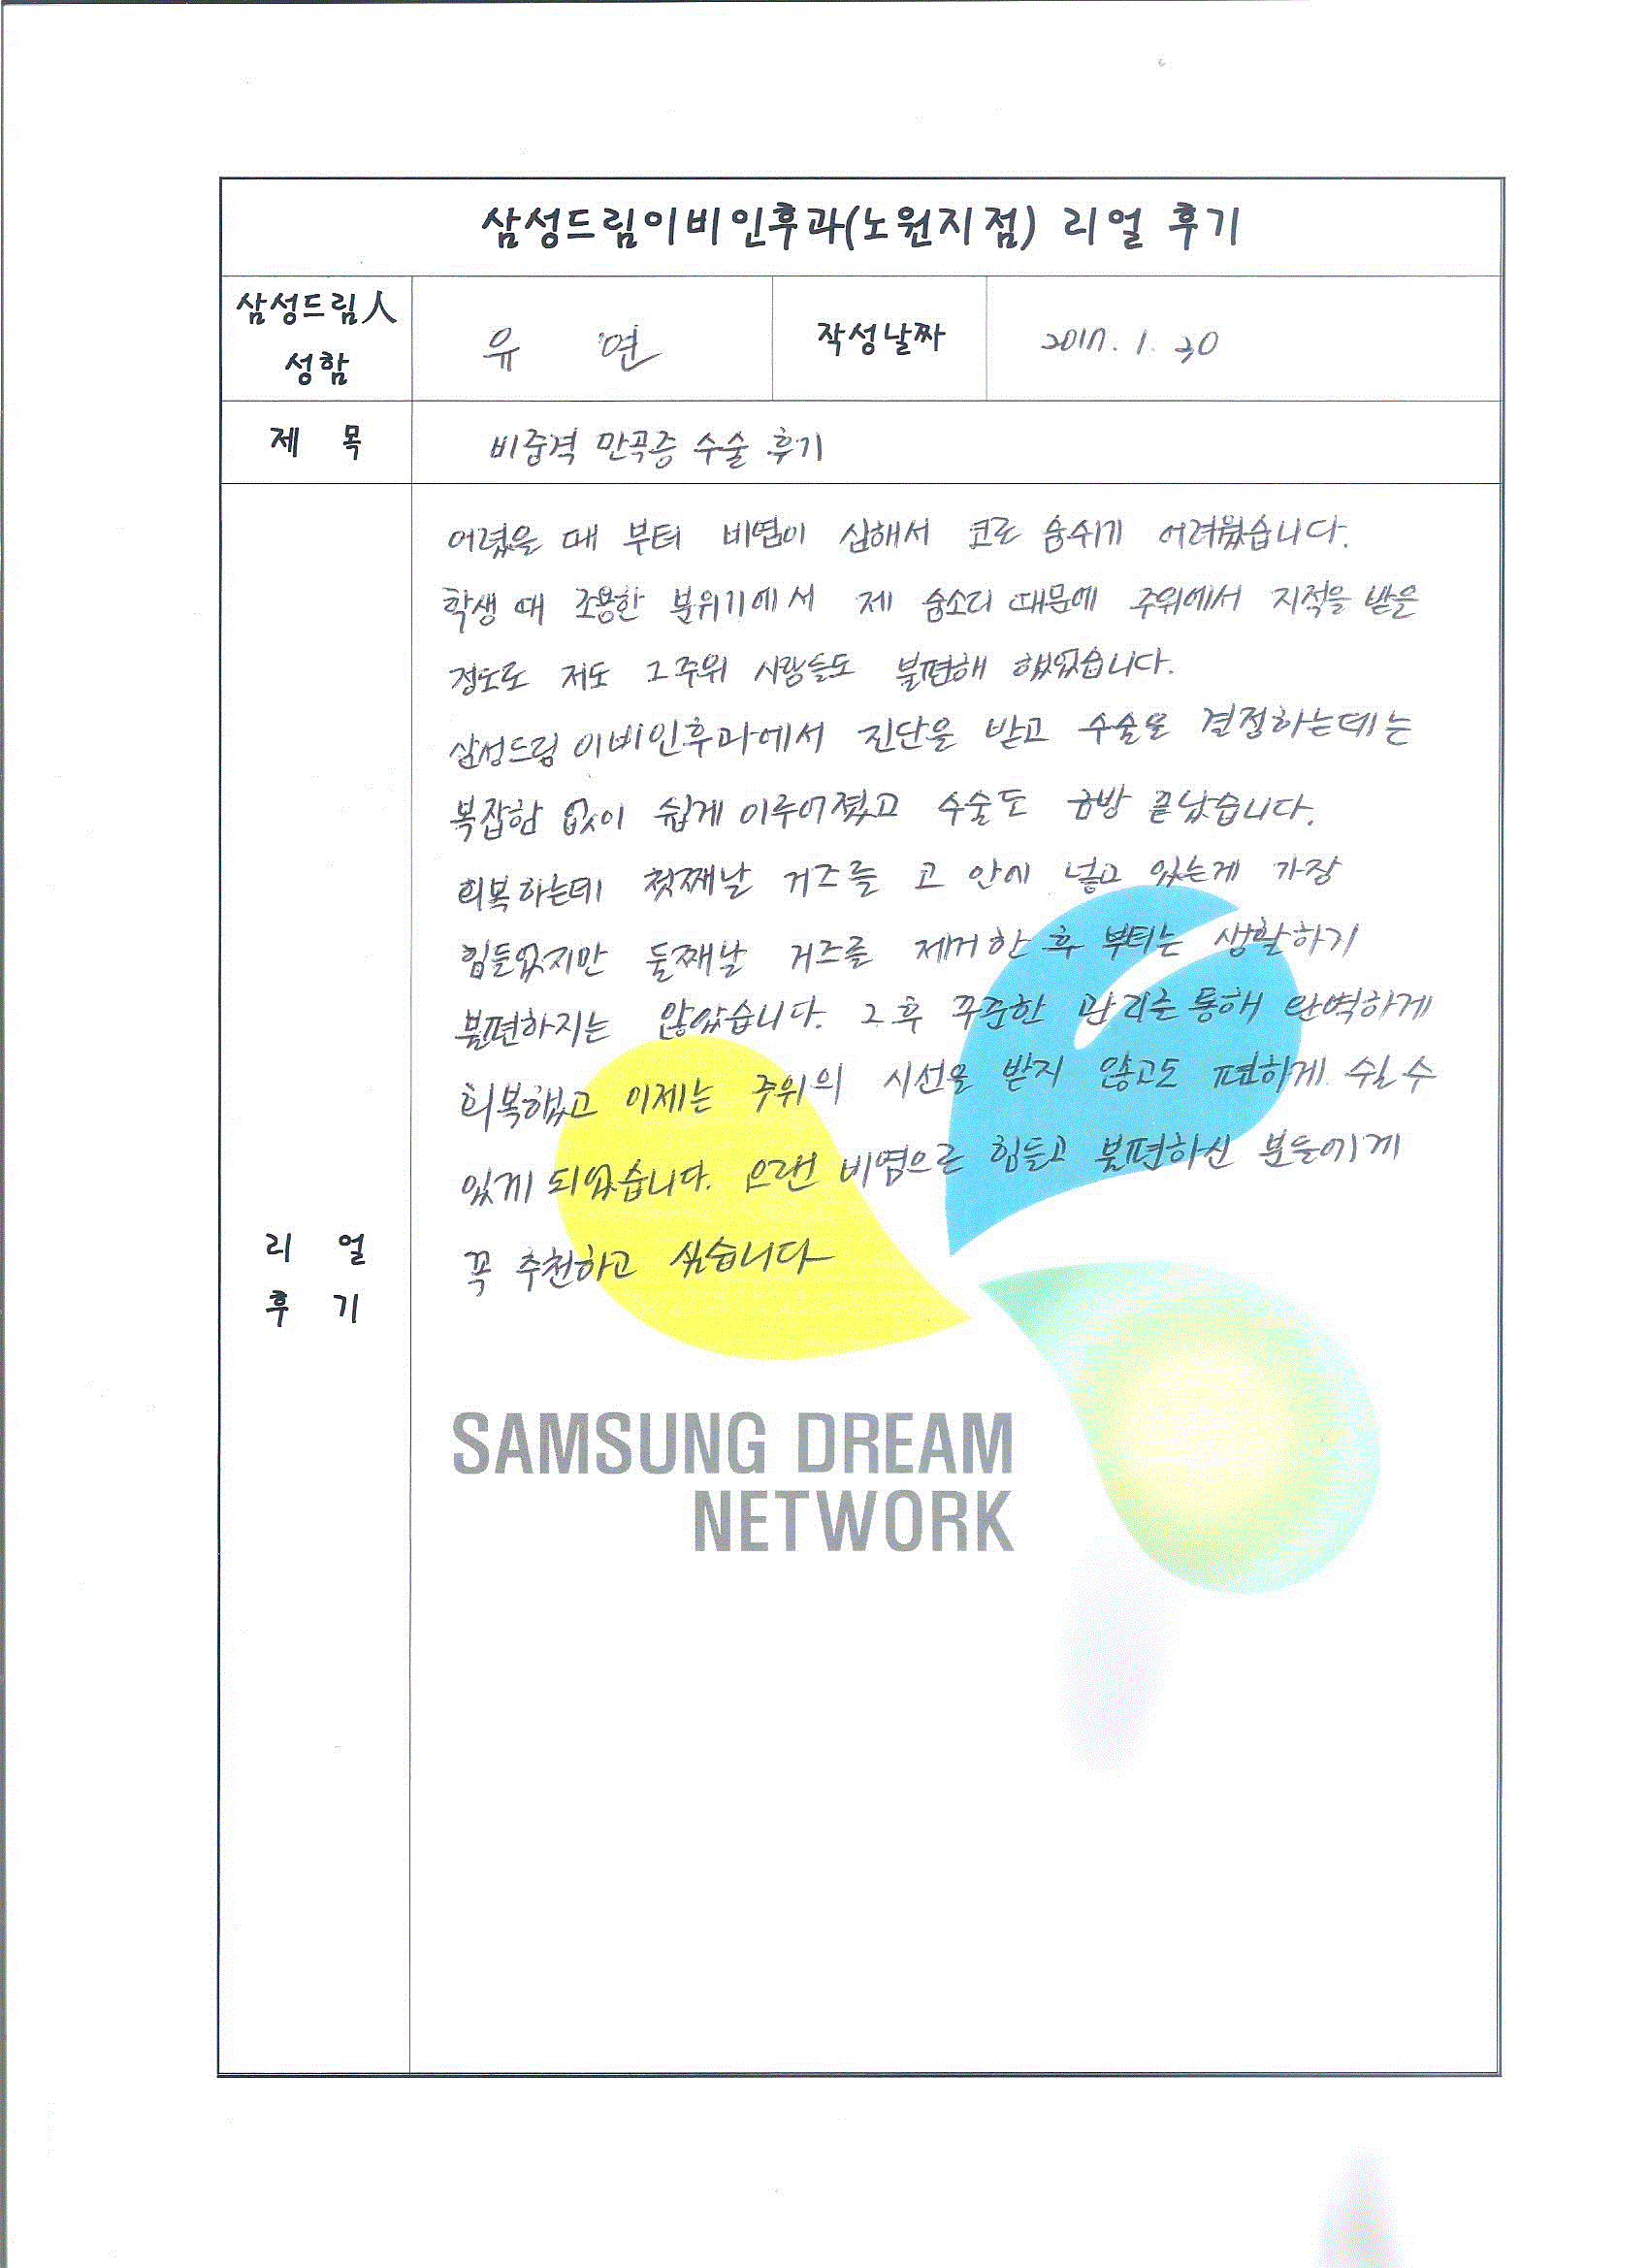 삼성드림이비인후과(노원지점) 리얼 후기
삼성드림人
성함
유 연
작성날짜
2017. 1. 30
제 목
비중격 만곡증 수술 후기
어렸을 때 부터 비염이 심해서 코로 숨쉬기 어려웠습니다.
학생 때 조용한 분위기에서 제 숨소리 때문에 주위에서 지적을 받을
정도로 저도 그 주위 사람들도 불편해 했었습니다.
삼성드림 이비인후과에서 진단을 받고 수술을 결정하는데는
복잡함 없이 쉽게 이루어졌고 수술도 금방 끝났습니다.
회복하는데 첫째날 거즈를 코 안에 넣고 있는게 가장
힘들었지만 둘째날 거즈를 제거한 후 부터는 생활하기
불편하지는 않았습니다. 그 후 꾸준한 관리를 통해 완벽하게
회복했고 이제는 주위의 시선을 받지 않고도 편하게 쉴 수
있게 되었습니다. 오랜 비염으로 힘들고 불편하신 분들에게
꼭 추천하고 싶습니다
리 얼
후 기
SAMSUNG DREAM
NETWORK